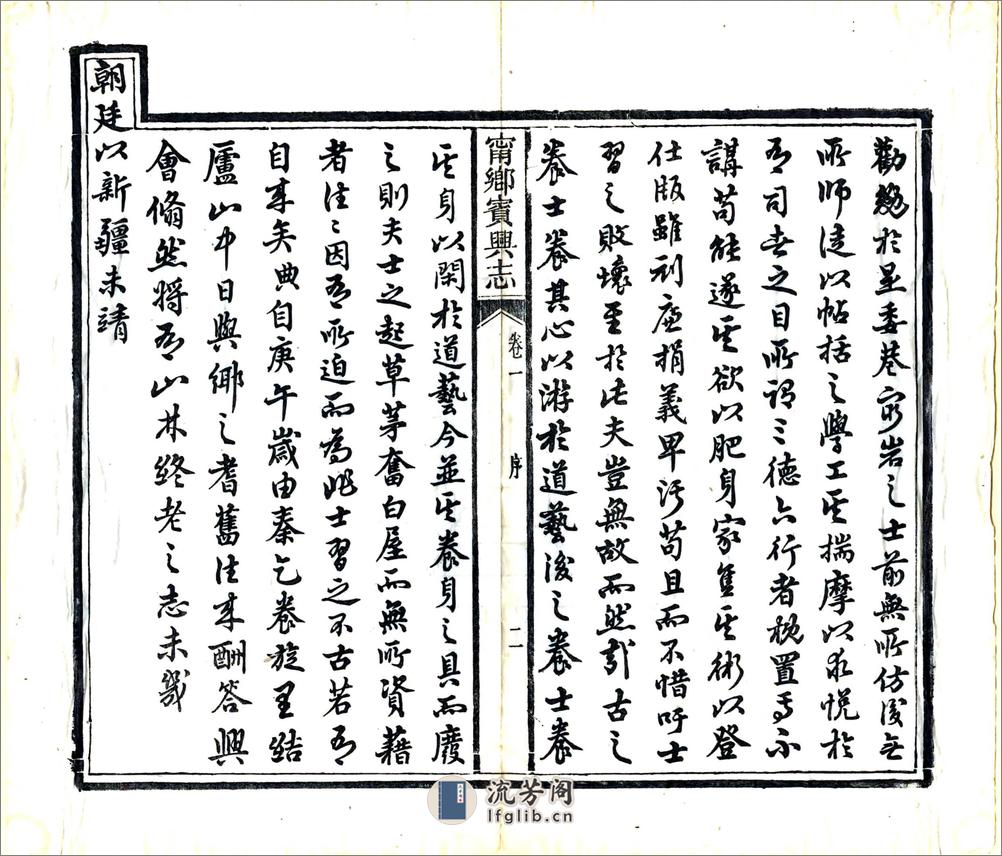 勸懲於是委巷窮岩之士前無所仿後無
所師徒以帖括之學工其揣摩以求悅於
有司世之目所謂三德六行者概置弗
講苟能遂其欲以肥身家售其術以登
仕版雖刓廉捐義卑汚苟且而不惜吁士
習之敗壞至於此夫豈無故而然哉古之
養士養其心以游於道藝後之養士養
甯鄉賓興志
卷一
序
二
其身以閑於道藝今並其養身之具而廢
之則夫士之起草茅奮白屋而無所資藉
者往往因有所迫而為非士習之不古若有
自來矣典自庚午歲由秦乞養旋里結
廬山中日與鄉之耆舊往來酬答興
會翛然將有山林終老之志未幾
朝廷以新疆未靖
流芳阁
lfglib.cn